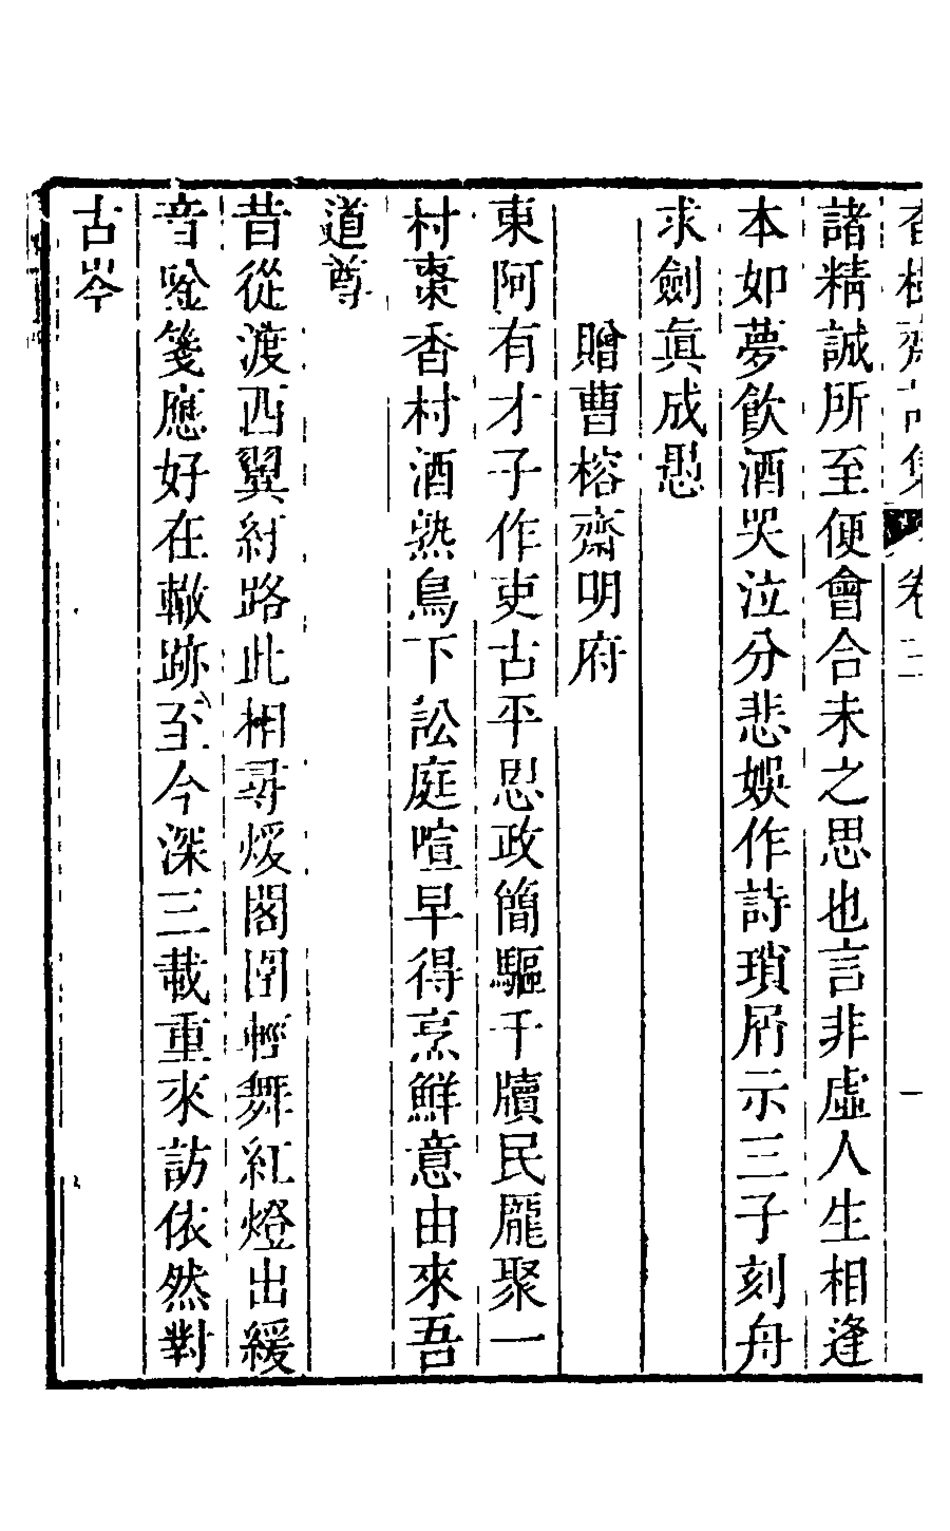 諸精誠所至便會合未之思也言非虛人生相逢
本如夢飲酒哭泣分悲娛作詩瑣屑示三子刻舟
求劍眞成愚
贈曹榕齋明府
東阿有才子作吏古平恩政簡驅千牘民龐聚一
村棗香村酒熟鳥下訟庭喧早得烹鮮意由來吾
道尊
昔從渡西翼紆路此相尋煖閣圍輕舞紅燈出緩
音唫箋應好在轍跡至今深三載重來訪依然對
古岑